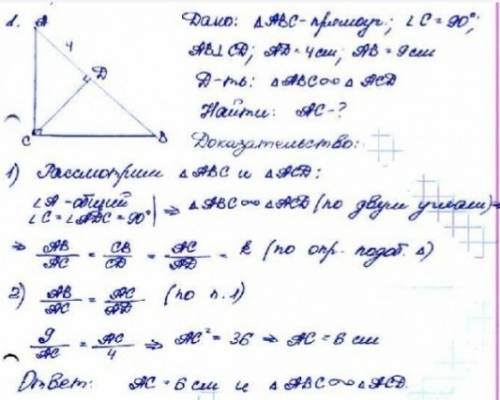 1.
A
4
D
C
B
Дано: △ABC - прямоуг.; ∠C = 90°;
AB⊥CD; AD = 4 см, AB = 9 см
Д-ть: △ABC ∞ △ACD
Найти: AC - ?
Доказательство:
1) Рассмотрим △ABC и △ACD:
∠A - общий
∠C = ∠ADC = 90° | ⇒ △ABC ∞ △ACD (по двум углам) ⇒
⇒ AB/AC = CB/CD = AC/AD = k (по опр. подоб. △)
2) AB/AC = AC/AD (по п. 1)
9/AC = AC/4 ⇒ AC² = 36 ⇒ AC = 6 см
Ответ: AC = 6 см и △ABC ∞ △ACD.